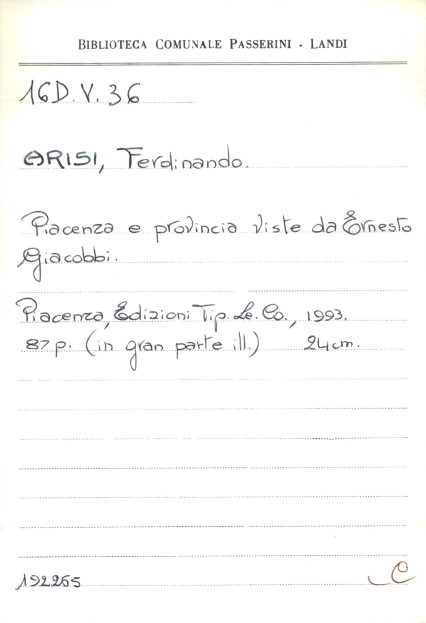 BIBLIOTECA COMUNALE PASSERINI - LANDI
16D.V.36
ARISI, Ferdinando.
Piacenza e provincia viste da Ernesto
Giacobbi.
Piacenza, Edizioni Tip. Le. Co., 1993.
87 p. (in gran parte ill.) 24 cm.
192265
C